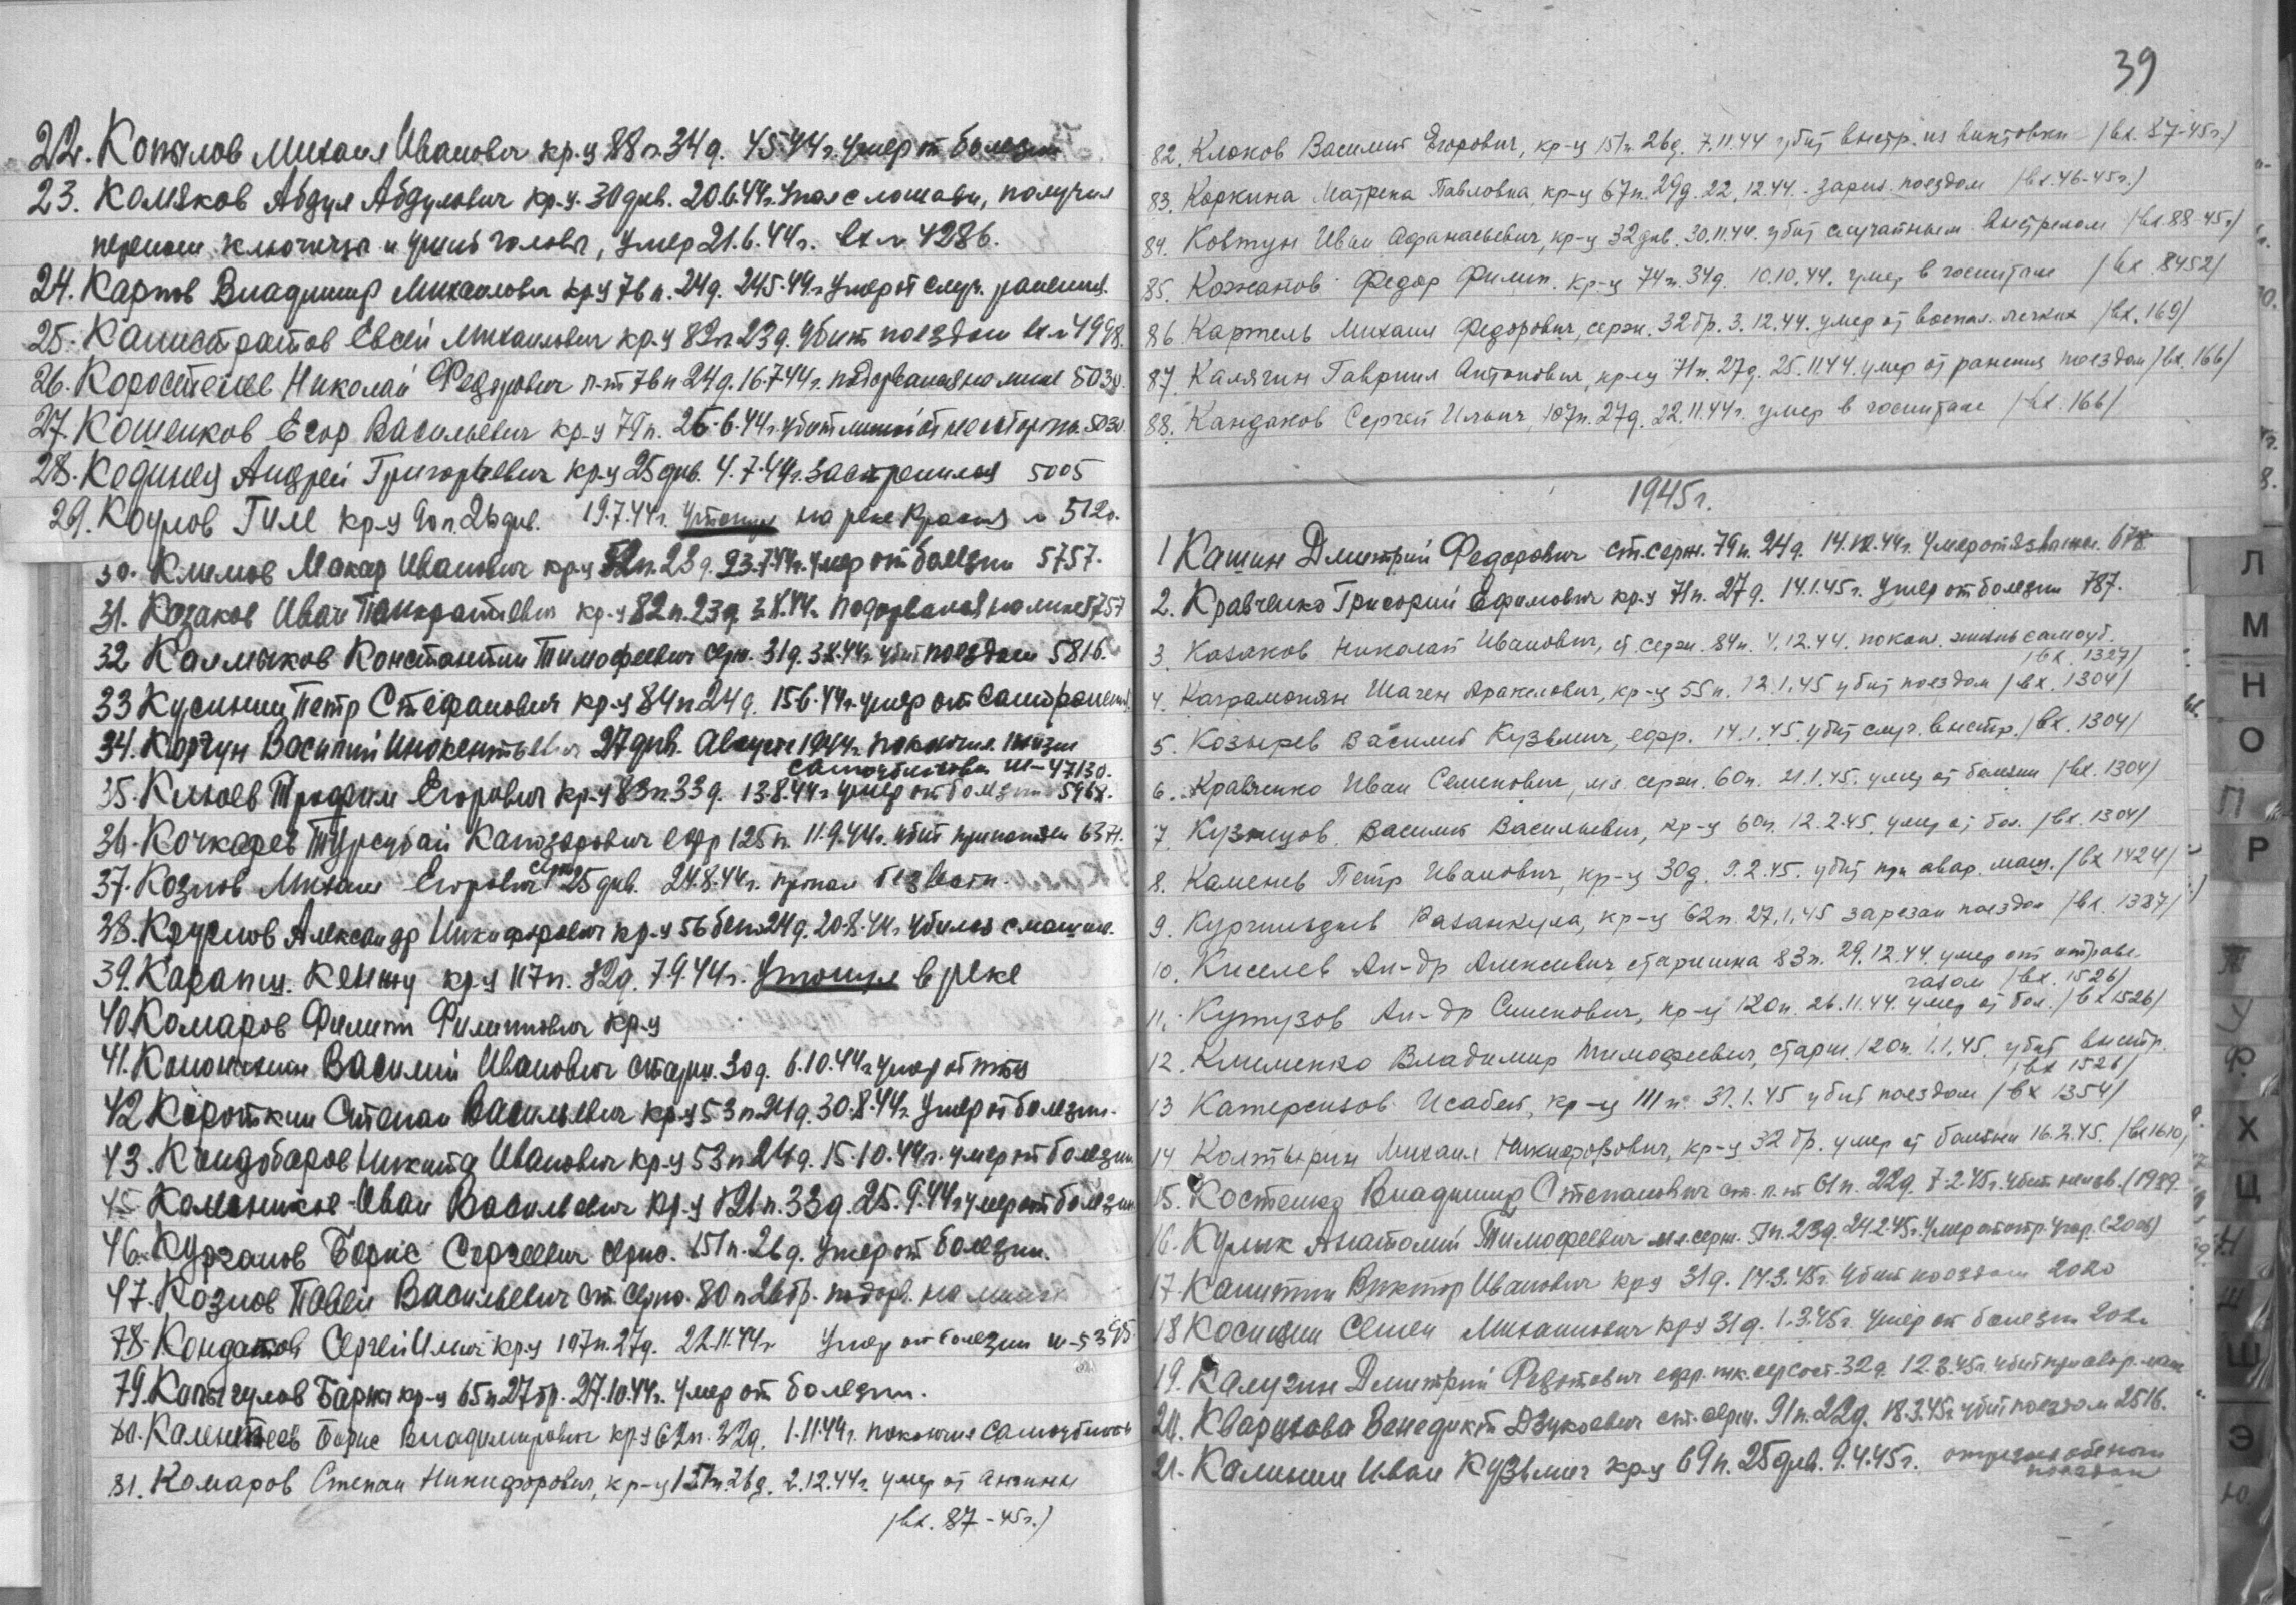 22. Копылов Михаил Иванович кр-ц 88п. 34д. 4.5.44г. умер от болезни
23. Комяков Абдул Абдулович кр-ц. 30див. 20.6.44г. упал с лошади, получил
перелом ключицы и ушиб головы, умер 21.6.44г. вх № 4286.
24. Карпов Владимир Михайлович кр-ц 76п. 24д. 24.5.44г. умер от случ. ранения.
25. Калистратов Евсей Михайлович кр-ц 82п. 23д. убит поездом вх № 4998.
26. Коростелев Николай Федорович л-т 76п 24д. 16.7.44г. подорвался на мине 5030.
27. Кошенков Егор Васильевич кр-ц 79п. 26.6.44г. убит 5030.
28. Андрей Григорьевич кр-ц 25див. 4.7.44г. застрелился 5005
29. Гиле кр-ц 90п. 26див. 19.7.44г. утонул на реке № 5120.
30. Климов Макар Иванович кр-ц 82п. 23д. 23.7.44г. умер от болезни 5757.
31. Козаков Иван Панкратьевич кр-ц 82п. 23д. 3.8.44г. подорвался на мине 5757
32 Калмыков Константин Тимофеевич серж. 31д. 3.8.44г. убит поездом 5816.
33 Петр Степанович кр-ц 84п 24д. 15.6.44г. умер от
34. Корчун Василий Инокентьевич 27див. Август 1944г. покончил жизнь
самоубийством 47130.
35. Трофим Егорович кр-ц 83п. 33д. 13.8.44г. умер от болезни 5968.
36. Кочкарев Турсубай ефр 125п. 11.9.44г. убит 6371.
37. Козлов Михаил Егорович серж 25див. 24.8.44г. пропал без вести.
38. Круглов Александр Никифорович кр-ц 56 24д. 20.8.44г. убился с машины.
39. кр-ц 117п. 32д. 7.9.44г. утонул в реке
40. Комаров Филипп Филиппович кр-ц
41. Василий Иванович старш. 30д. 6.10.44г. умер от
42 Короткин Степан Васильевич кр-ц 53п 24д. 30.8.44г. умер от болезни.
43. Никита Иванович кр-ц 53п 24д. 15.10.44г. умер от болезни
45 Иван Васильевич кр-ц 121п. 33д. 25.9.44г. умер от болезни
46. Курганов Борис Сергеевич серж. 151п. 26д. умер от болезни.
47. Козлов Павел Васильевич ст. серж. 80п 26бр. подорв. на мине
78. Кондаков Сергей Ильич кр-ц 107п. 27д. 22.11.44г. умер от болезни
79. кр-ц 65п 27бр. 27.10.44г. умер от болезни.
80. Борис Владимирович кр-ц 62п. 32д. 1.11.44г. покончил самоубийств
81. Комаров Степан Никифорович, кр-ц 151п. 26д. 2.12.44г. умер от ангины
/вх. 87-45г./
39
82. Клоков Василий Егорович, кр-ц 151п. 26д. 7.11.44 убит выстр. из винтовки /вх. 87-45г./
83. Коркина Матрена Павловна, кр-ц 67п. 29д. 22.12.44. зарез. поездом /вх. 46-45г./
84. Ковтун Иван Афанасьевич, кр-ц 32див. 30.11.44. убит случайным выстрелом /вх. 88-45г/
85. Кожанов Федор Филип. кр-ц 74п. 34д. 10.10.44. умер в госпитале /вх. 8452/
86. Картель Михаил Федорович, серж. 32бр. 3.12.44. умер от воспал. легких /вх. 169/
87. Калягин Гавриил Антонович, кр-ц 71п. 27д. 25.11.44. умер от ранения поездом /вх. 166/
88. Кандаков Сергей Ильич, 107п. 27д. 22.11.44г. умер в госпитале /вх. 166/
1945г.
1 Кашин Дмитрий Федорович ст. серж. 79п. 24д. умер от 678.
2. Кравченко Григорий Ефимович кр-ц 71п. 27д. 14.1.45г. умер от болезни 787.
3. Казаков Николай Иванович, ст. серж. 84п. 4.12.44. покон. жизнь самоуб.
/вх. 1327/
4. Каграмонян Шаген Аракелович, кр-ц 55п. 12.1.45 убит поездом /вх. 1304/
5. Козырев Василий Кузьмич, ефр. 14.1.45. убит случ. выстр. /вх. 1304/
6. Кравченко Иван Семенович, мл. серж. 60п. 21.1.45. умер от болезни /вх. 1304/
7. Кузнецов Василий Васильевич, кр-ц 60п. 12.2.45. умер от бол. /вх. 1304/
8. Каменев Петр Иванович, кр-ц 30д. 9.2.45. убит при авар. маш. /вх 1424/
9. кр-ц 62п. 27.1.45 зарезан поездом /вх. 1387/
10. Киселев Ал-др Алексеевич, старшина 83п. 29.12.44. умер от отравл.
газом /вх. 1526/
11. Кутузов Ал-др Семенович, кр-ц 120п. 26.11.44. умер от бол. /вх 1526/
12. Клименко Владимир Тимофеевич, старш. 120п. 1.1.45. убит выстр.
/вх 1526/
13 Исабек, кр-ц 111п. 31.1.45 убит поездом /вх 1354/
14 Колтырин Михаил Никифорович, кр-ц 32бр. умер от болезни 16.2.45. /вх 1610/
15. Костенко Владимир Степанович ст. л-т 61п. 22д. 7.2.45г. убит (1989.
16. Кулык Анатолий Тимофеевич мл. серж. 57п. 23д. 24.2.45г. умер (2006)
17 Виктор Иванович кр-ц 31д. 14.3.45г. убит поездом 2020
18 Косицын Семен Михайлович кр-ц 31д. 1.3.45г. умер от болезни
19. Калугин Дмитрий Федотович ефр. 32д. 12.3.45г. убит при авар. маш
20. Венедикт ст. серж. 91п. 22д. 18.3.45г. убит поездом 2516.
21. Калинин Иван Кузьмич кр-ц 69п. 25див. 9.4.45г.
поездом
Л
М
Н
О
П
Р
Т
У
Ф
Х
Ц
Ч
Ш
Щ
Э
Ю